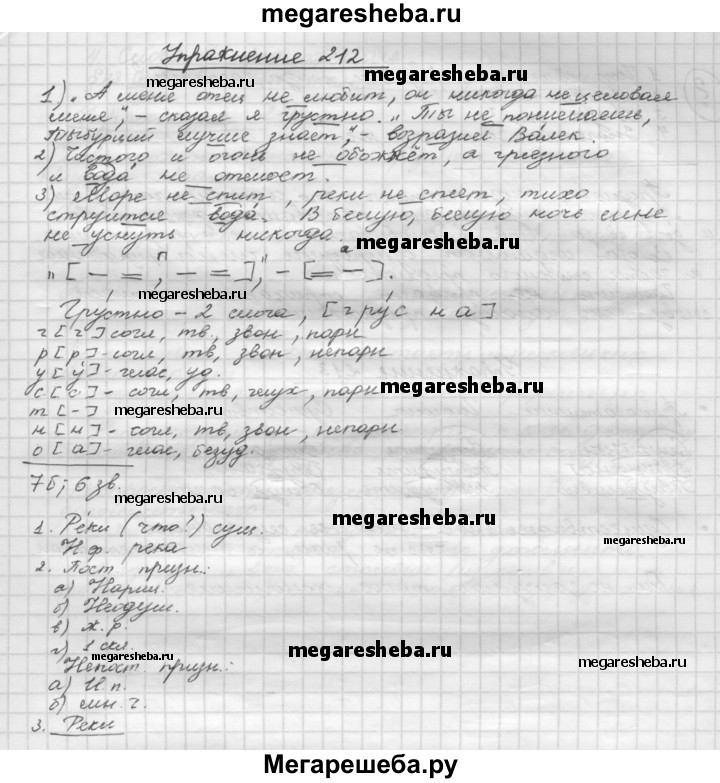 megaresheba.ru
Упражнение 212
megaresheba.ru
megaresheba.ru
1) „А меня отец не любит, он никогда не целовал
меня", – сказал я грустно. „Ты не понимаешь,
Тыбурций лучше знает", – возразил Валек.
2) Чистого и огонь не обожжёт, а грязного
и вода не отмоет.
3) Море не спит, реки не спят, тихо
струится вода. В белую, белую ночь мне
не уснуть никогда.
megaresheba.ru
„[ – =, П – = ]", – [ = – ]. а
megaresheba.ru
Грустно – 2 слога, [грус на]
г [г] согл, тв., звон, парн
р [р] - согл, тв, звон, непарн
у [у́] - глас, уд.
с [с] - согл, тв, глух, парн
megaresheba.ru
т [-]
megaresheba.ru
н [н] - согл, тв, звон, непарн
о [а] - глас, безуд.
7б, 6 зв.
megaresheba.ru
megaresheba.ru
1. Реки (что?) сущ.
Н.ф. река
2. Пост призн.:
а) Нариц.
б) Неодуш.
в) ж.р.
г) 1 скл.
megaresheba.ru
megaresheba.ru
Непост. призн.:
а) И.п.
б) мн.ч.
3. Реки
Мегарешеба.ру